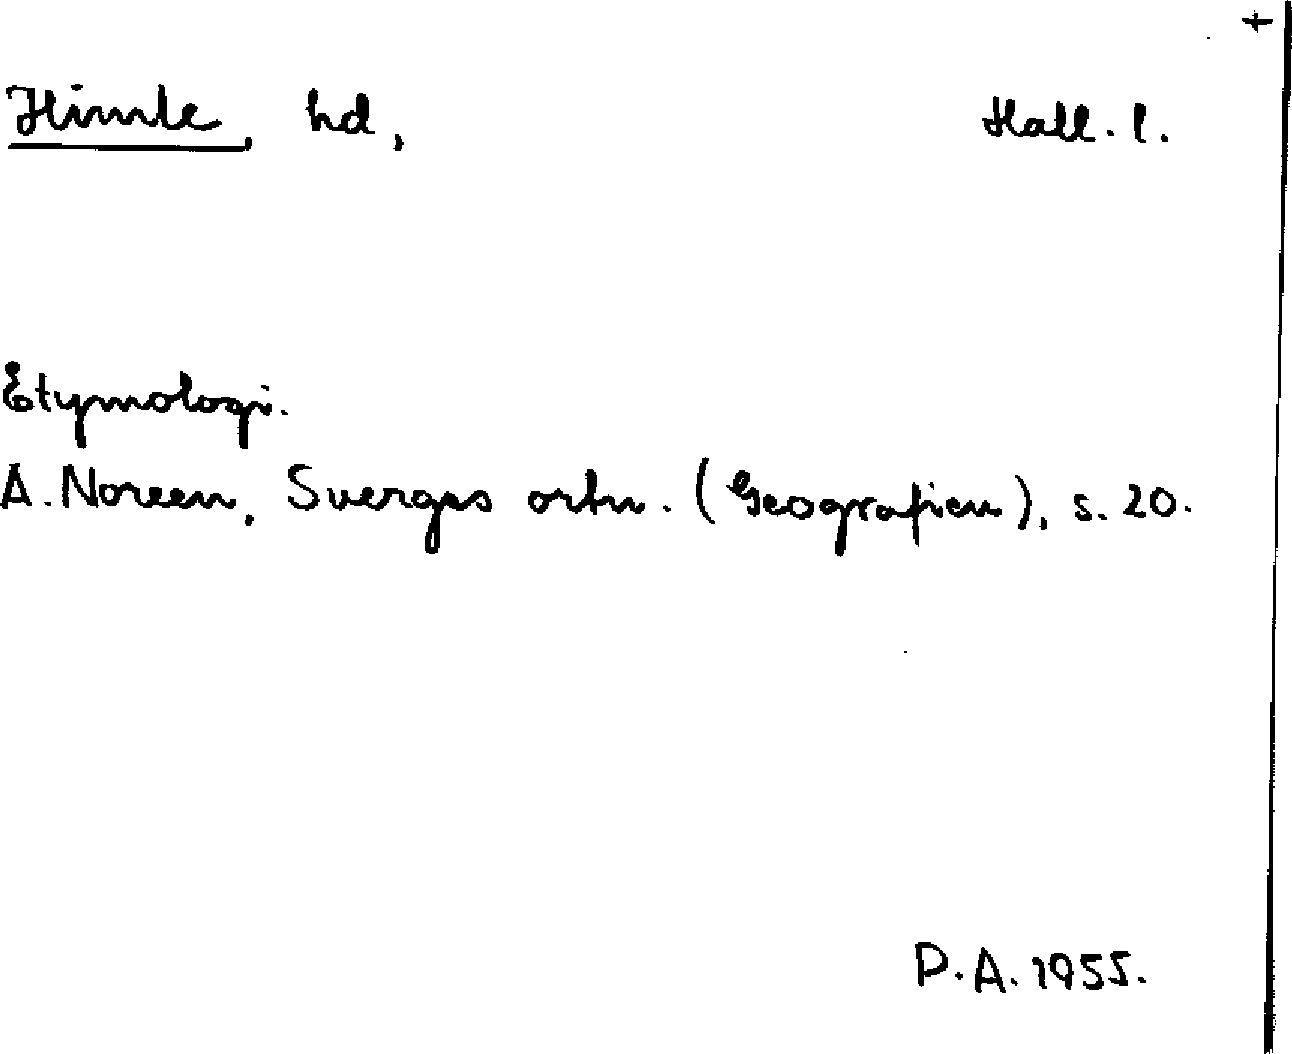 +
Himle, hd, Hall. l.
Etymologi.
A. Noreen, Sverges ortn. (Geografien), s. 20.
P. A. 1955.